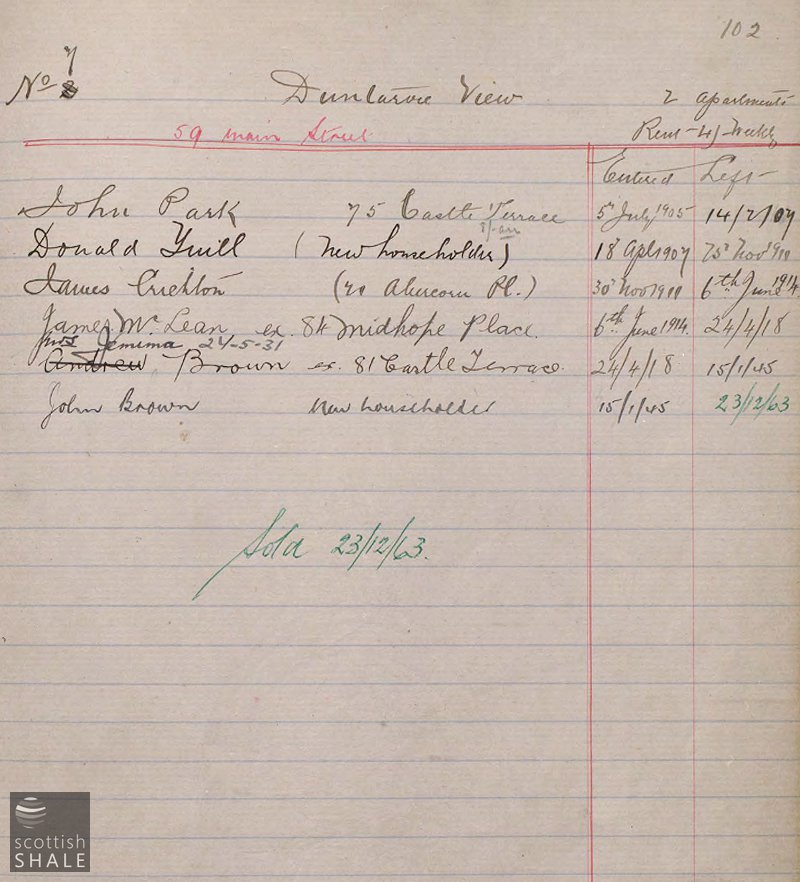 102
7
No 8
Duntarvie View
2 apartments
59 Main Street
Rent 4/- Weekly
Entered Left
John Park 75 Castle Terrace 5th July 1905 14/2/07
Donald Yuill (New householder) 18 Apl 1907 25 Nov 1911
James Crichton (20 Abercorn Pl.) 30 Nov 1911 6th June 1914
James Mc Lean ex. 84 Midhope Place. 6th June 1914. 24/4/18
Mrs Jemima 24-5-31
Andrew Brown ex. 81 Castle Terrace. 24/4/18 15/1/45
John Brown New householder 15/1/45 23/12/63
Sold 23/12/63.
scottish
SHALE